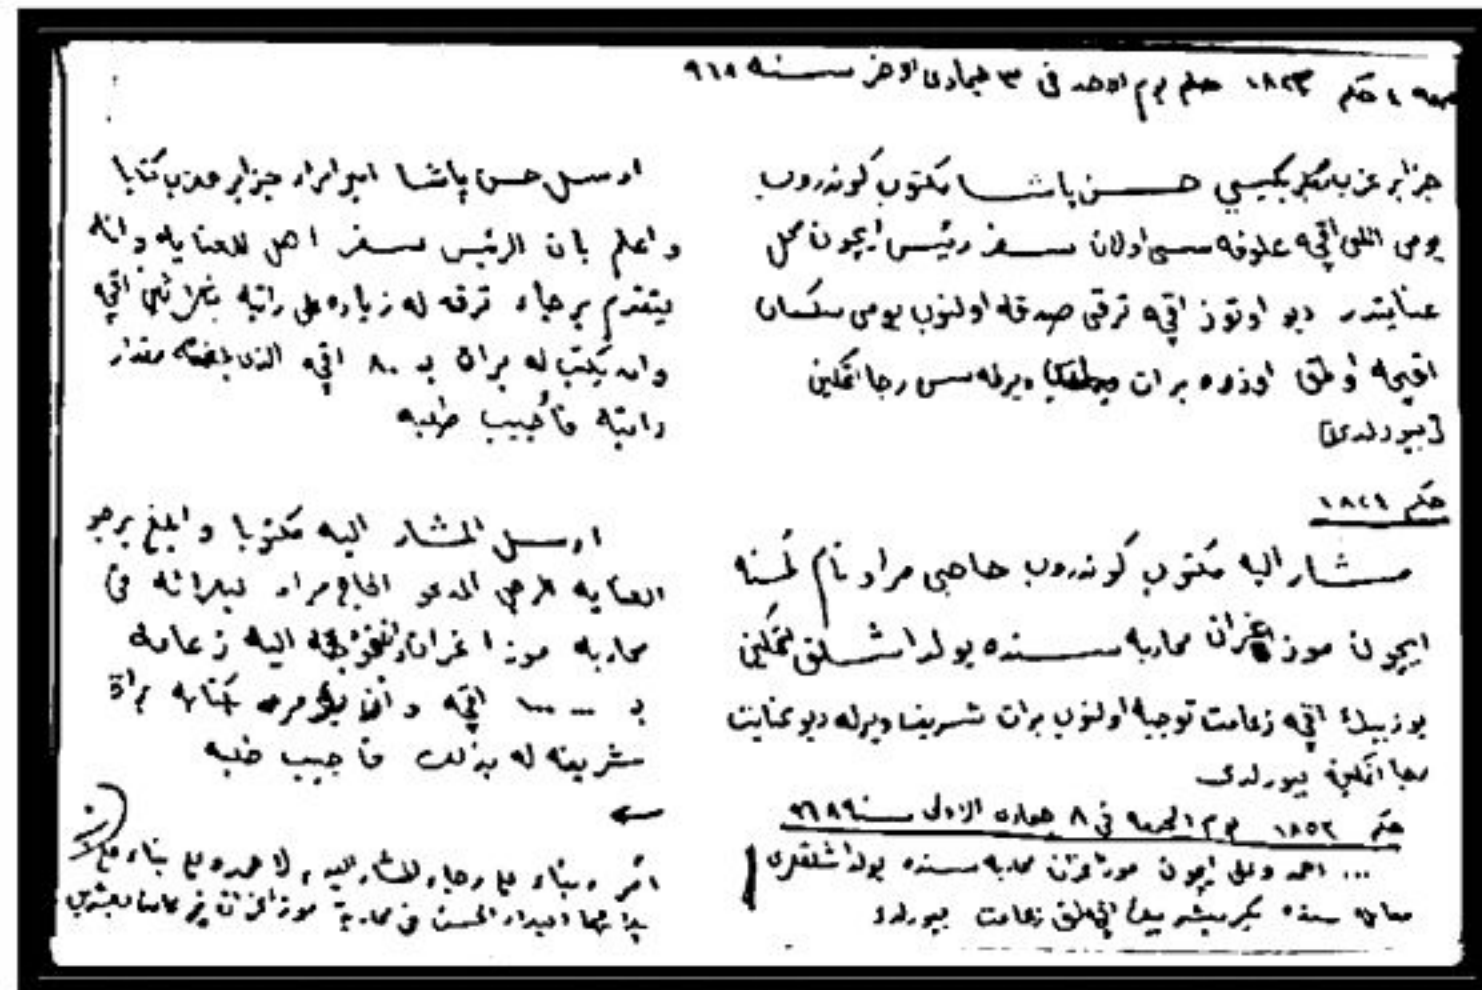 حكم ١٨٢٣ حكم يوم الاحد في ٣ جمادى الاخر سنه ٩٦٨
جزاير غرب بكلربكيسي حسن پاشا مكتوب كوندروب
يومى اللى اقچه علوفه سى اولان سفر رئيس ايچون محل
عنايتدر ديو اوتوز اقچه ترقى صدقه اولنوب يومى سكسان
اقچه اولمق اوزره برات ويرلمسى رجا اتمكين
[بيورلدى]
حكم ١٨٢٤
مشار اليه مكتوب كوندروب حاجى مراد نام كمسنه
ايچون موزاغران محاربه سنده يولداشلق اتمكين
يوز بيك اقچه زعامت توجيه اولنوب برات شريف ويرله ديو عنايت
رجا اتمكين بيورلدى
حكم ١٨٥٢ يوم الجمعه في ٨ جماده الاولى سنه
... احمد ولى ايچون موزاغران محاربه سنده يولداشلقلرى
يكرميشر بيك اقچه لق زعامت بيورلدى
ارسل حسن پاشا امير امراء جزاير غرب كتابا
واعلم بان الرئيس سفر اهل للعنايه وانه
يتقدم برجاء ترقه له زياده على راتبه
وان يكتب له براة بـ ٨٠ اقچه الذى مقدار
راتبه فأجيب طلبه
ارسل المشار اليه مكتوبا وابلغ برجو
العنايه الى المدعو الحاج مراد في
محاربه موزاغران اليه زعامه
بـ ١٠٠٠٠٠ اقچه وان كتابه براة
شريفه له بذلك فاجيب طلبه
امر وبناء على رجاء المشار اليه لاحمد وعلى بناء على
الحسن في محاربة موزاغران